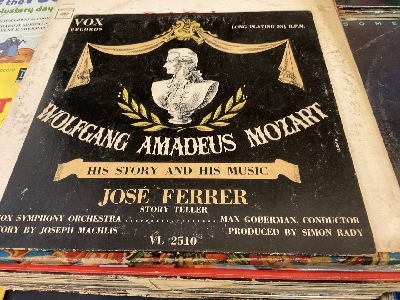 VOX
RECORDS
LONG PLAYING 33⅓ R.P.M.
WOLFGANG AMADEUS MOZART
HIS STORY AND HIS MUSIC
JOSÉ FERRER
STORY TELLER
VOX SYMPHONY ORCHESTRA .................... MAX GOBERMAN, CONDUCTOR
STORY BY JOSEPH MACHLIS
PRODUCED BY SIMON RADY
VL 2510